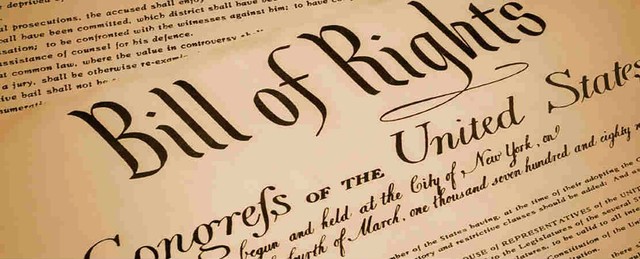 deprived of
al prosecutions, the accused shall enjoy
all have been committed, which district shall have be
sation; to be confronted with the witnesses against him; to have co
ssistance of counsel for his defence.
at common law, where the value in controversy sh
a jury, shall be otherwise re-exami
ive bail shall not be
numerati
Bill of Rights
Congreſs OF THE United States
begun and held at the City of New York, on
fourth of March, one thousand seven hundred and eighty n
mber of the States having, at the time of their adopting the
atory and restrictive clauses should be added: And
OUSE OF REPRESENTATIVES of the UNITED
to the Legislatures of the several S
to be valid to all inte
Constitution of the